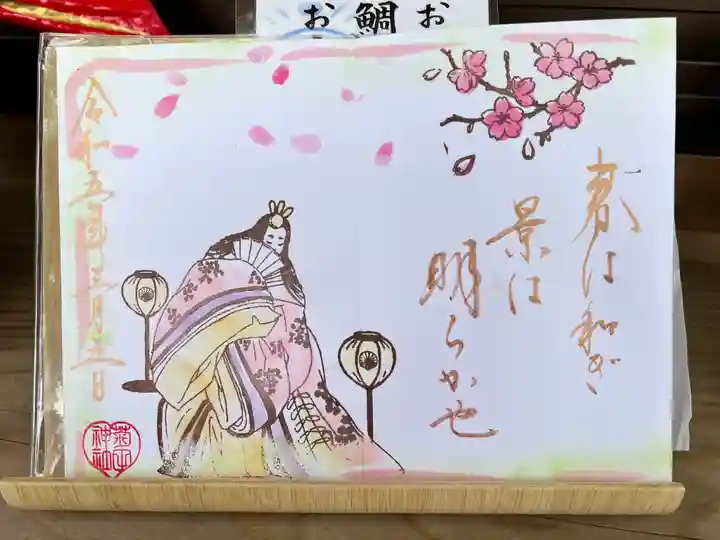 お
鯛
お
春は和ぎ
景は
明らか也
令和五年三月三日
菊田
神社